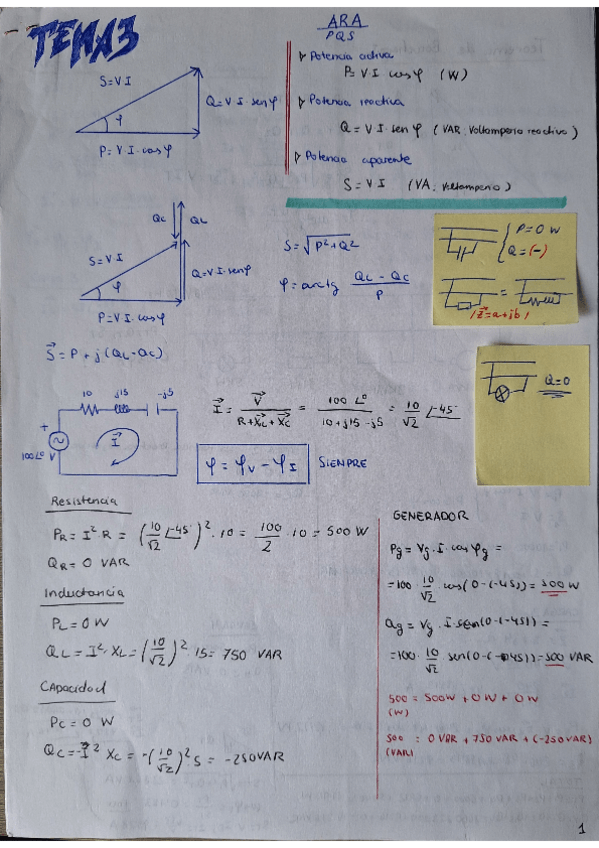 TEMA 3
ARA
PQS
▷ Potencia activa
P = V I cos φ (W)
▷ Potencia reactiva
Q = V I · sen φ ( VAR, Voltamperio reactivo )
▷ Potencia aparente
S = V I (VA, Voltamperio)
S = V I
Q = V I · sen φ
φ
P = V I · cos φ
Qc QL
S = V I
Q = V I · sen φ
φ
P = V I · cos φ
S = √P² + Q²
φ = arctg (QL - QC) / P
P = 0 W
Q = (-)
=
/Z⃗ = a + jb/
Q = 0
S⃗ = P + j (QL - QC)
10 j15 -j5
+
100∠0° V
I⃗
I⃗ = V⃗ / (R + X⃗L + X⃗C) = 100∠0° / (10 + j15 - j5) = 10/√2 ∠-45°
φ = φV - φI SIEMPRE
Resistencia
PR = I² · R = (10/√2 ∠-45°)² · 10 = 100/2 · 10 = 500 W
QR = 0 VAR
Inductancia
PL = 0 W
QL = I² · XL = (10/√2)² · 15 = 750 VAR
Capacidad
PC = 0 W
QC = -I² XC = -(10/√2)² · 5 = -250 VAR
GENERADOR
Pg = Vg · I · cos φg =
= 100 · 10/√2 cos (0 - (-45)) = 500 W
Qg = Vg · I · sen (0 - (-45)) =
= 100 · 10/√2 sen (0 - (-45)) = 500 VAR
500 = 500 W + 0 W + 0 W
(W)
500 = 0 VAR + 750 VAR + (-250 VAR)
(VAR)
1